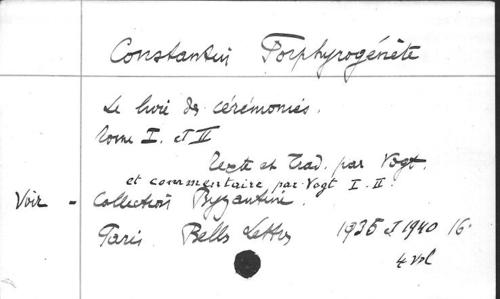 Constantin Porphyrogénète
Le livre des cérémonies.
Tome I. et II
Texte et Trad. par Vogt.
et commentaire par Vogt I. II.
Voir - Collection Byzantine.
Paris. Belles Lettres 1935 et 1940 16°
4 vol